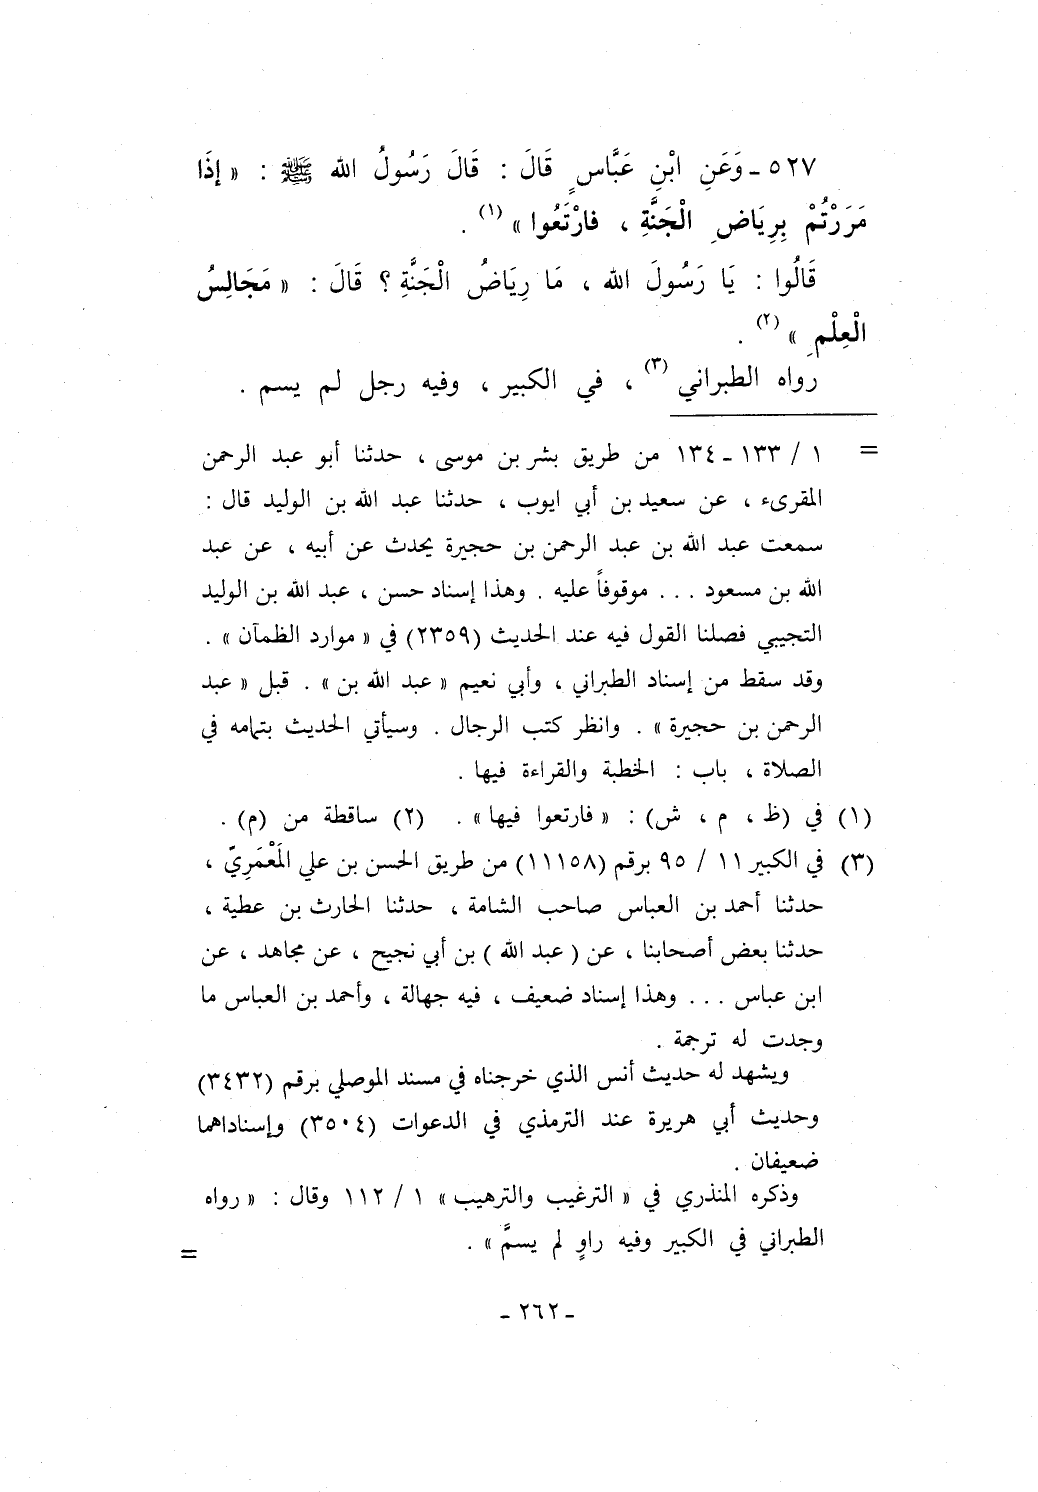 ٥٢٧ ـ وَعَنِ ابْنِ عَبَّاسٍ قَالَ : قَالَ رَسُولُ الله ﷺ : « إِذَا
مَرَرْتُمْ بِرِيَاضِ الْجَنَّةِ ، فارْتَعُوا » (١) .
قَالُوا : يَا رَسُولَ الله ، مَا رِيَاضُ الْجَنَّةِ ؟ قَالَ : « مَجَالِسُ
الْعِلْمِ » (٢) .
رواه الطبراني (٣) ، في الكبير ، وفيه رجل لم يسم .
= ١ / ١٣٣ ـ ١٣٤ من طريق بشر بن موسى ، حدثنا أبو عبد الرحمن
المقرىء ، عن سعيد بن أبي ايوب ، حدثنا عبد الله بن الوليد قال :
سمعت عبد الله بن عبد الرحمن بن حجيرة يحدث عن أبيه ، عن عبد
الله بن مسعود ... موقوفاً عليه . وهذا إسناد حسن ، عبد الله بن الوليد
التجيبي فصلنا القول فيه عند الحديث (٢٣٥٩) في « موارد الظمآن » .
وقد سقط من إسناد الطبراني ، وأبي نعيم « عبد الله بن » . قبل « عبد
الرحمن بن حجيرة » . وانظر كتب الرجال . وسيأتي الحديث بتمامه في
الصلاة ، باب : الخطبة والقراءة فيها .
(١) في (ظ ، م ، ش) : « فارتعوا فيها » . (٢) ساقطة من (م) .
(٣) في الكبير ١١ / ٩٥ برقم (١١١٥٨) من طريق الحسن بن علي المَعْمَرِيّ ،
حدثنا أحمد بن العباس صاحب الشامة ، حدثنا الحارث بن عطية ،
حدثنا بعض أصحابنا ، عن ( عبد الله ) بن أبي نجيح ، عن مجاهد ، عن
ابن عباس ... وهذا إسناد ضعيف ، فيه جهالة ، وأحمد بن العباس ما
وجدت له ترجمة .
ويشهد له حديث أنس الذي خرجناه في مسند الموصلي برقم (٣٤٣٢)
وحديث أبي هريرة عند الترمذي في الدعوات (٣٥٠٤) وإسناداهما
ضعيفان .
وذكره المنذري في « الترغيب والترهيب » ١ / ١١٢ وقال : « رواه
الطبراني في الكبير وفيه راوٍ لم يسمَّ » . =
ـ ٢٦٢ ـ